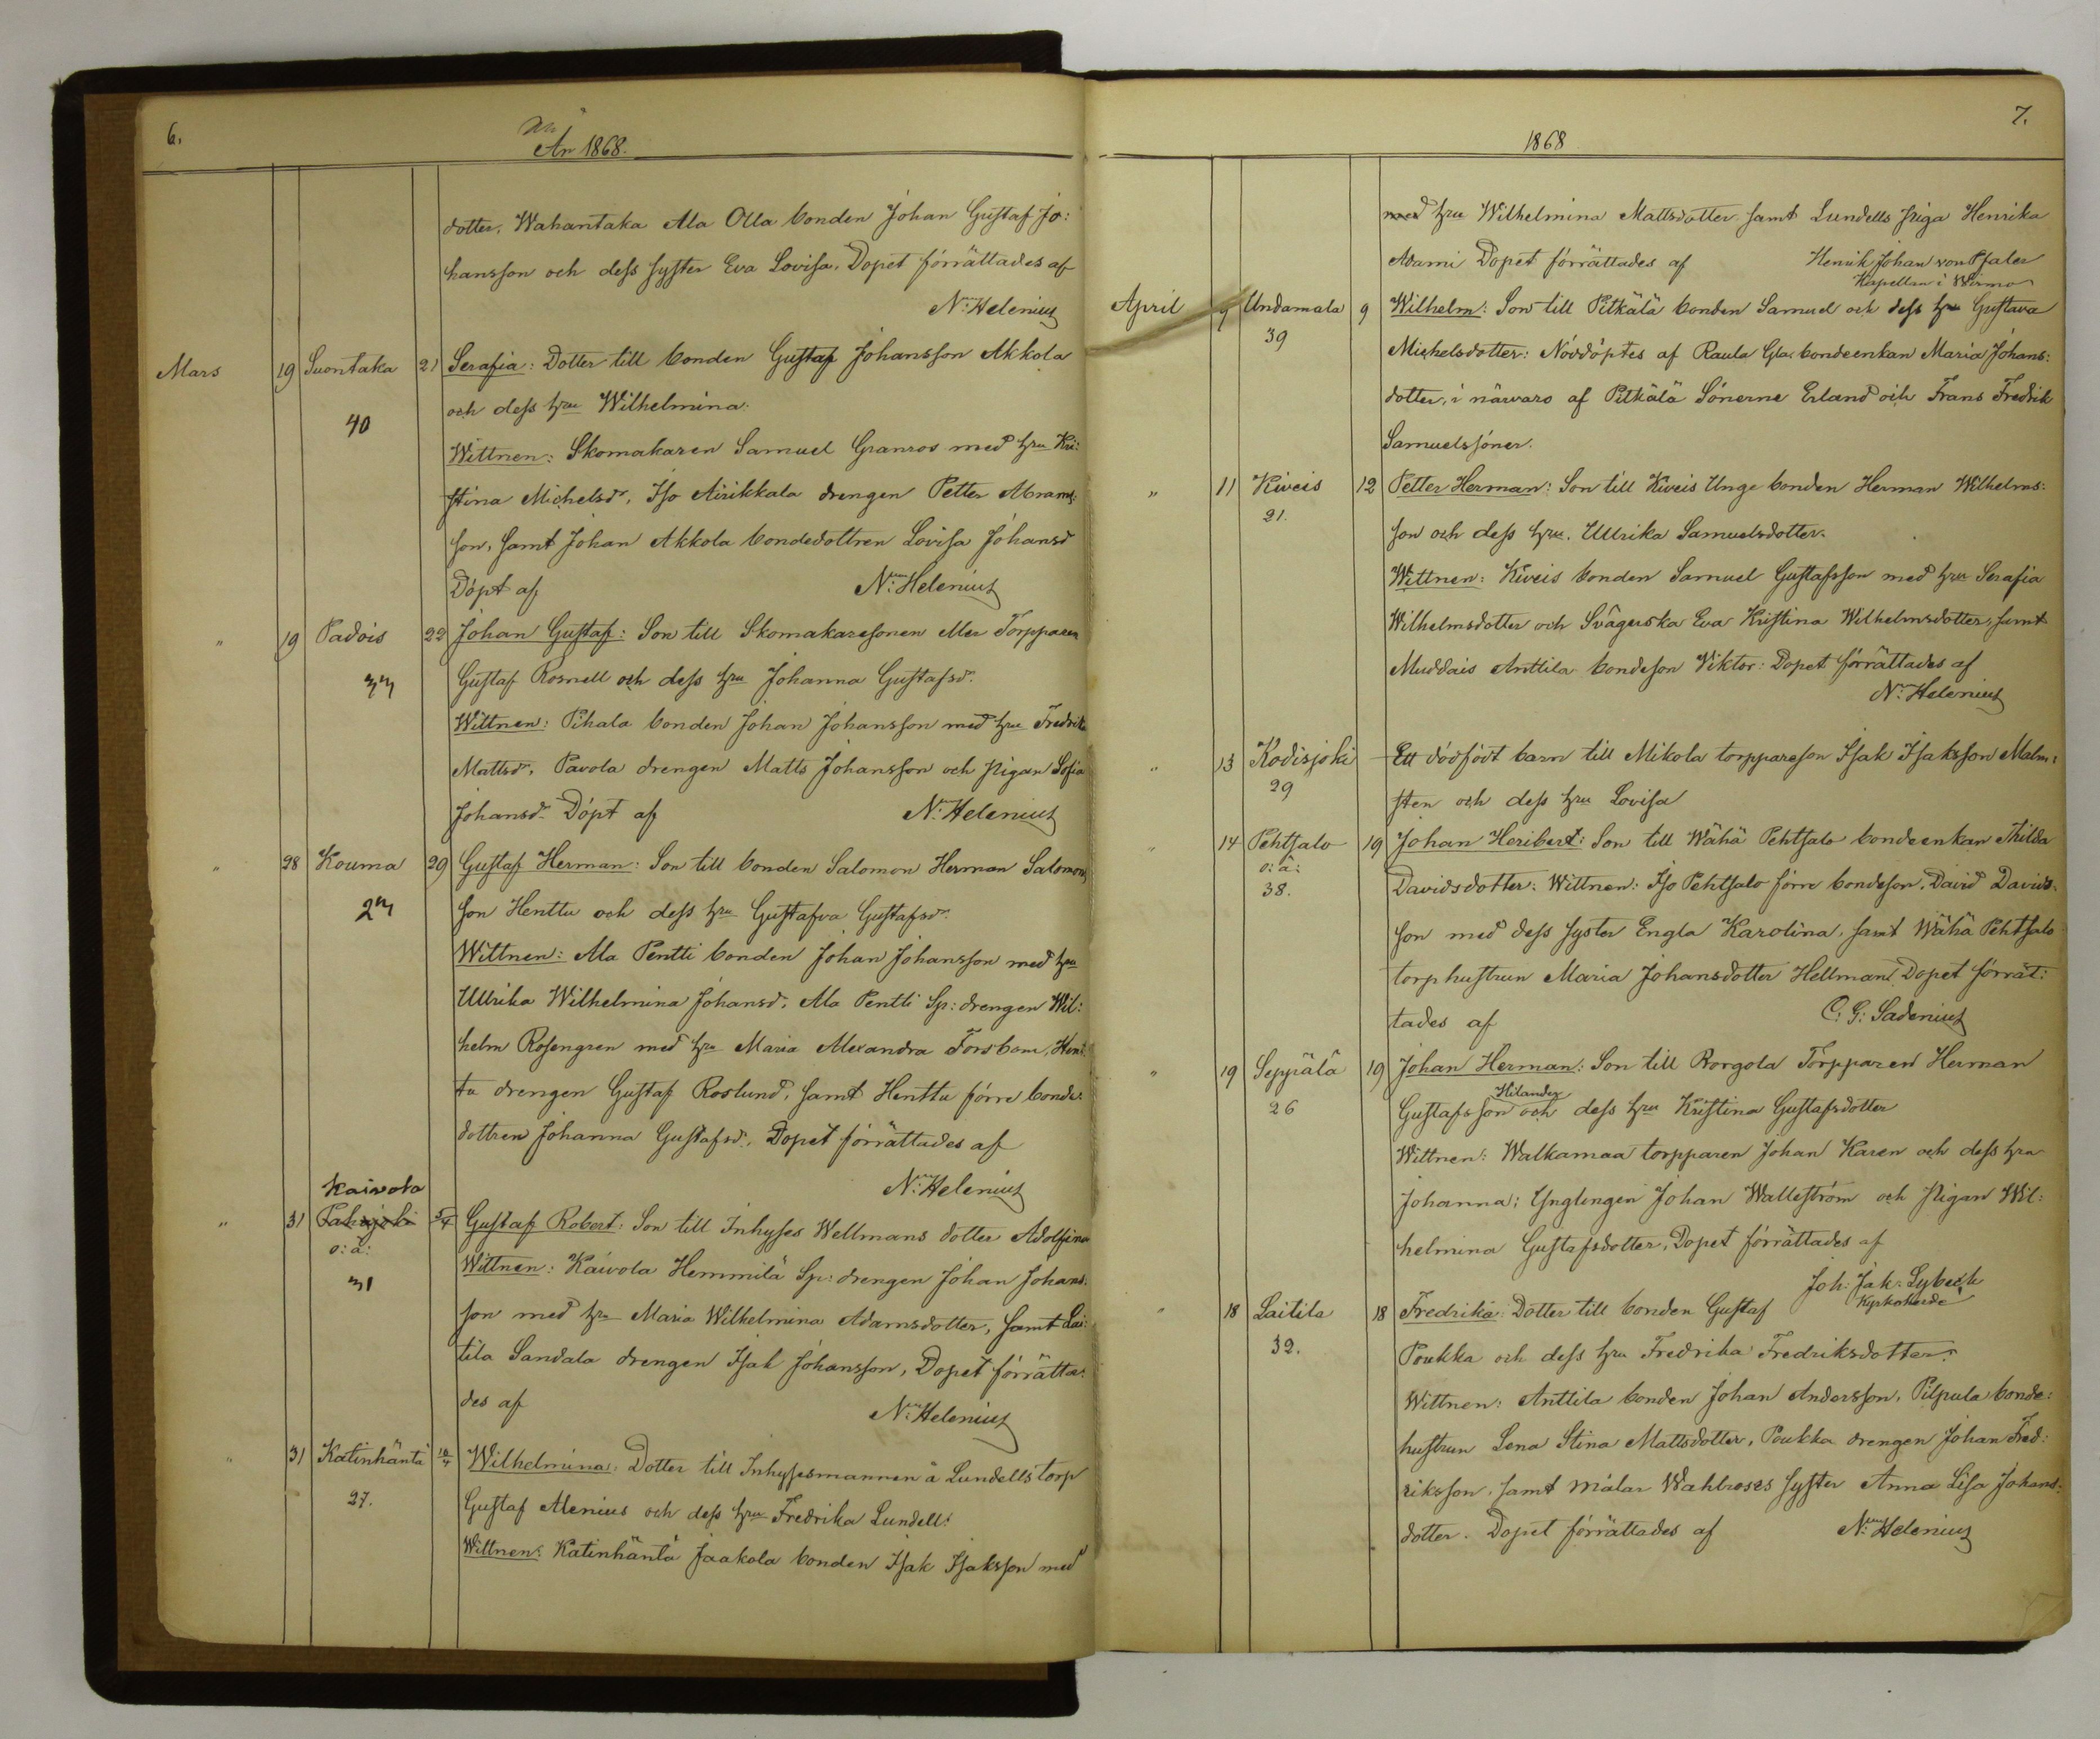 6.
År 1868.
dotter, Wahantaka Ala Olla bonden Johan Gustaf Jo:
hansson och dess syster Eva Lovisa. Dopet förrättades af
N: Helenius
Mars 19 Suontaka 21 Serafia: Dotter till bonden Gustaf Johansson Akkola
och dess hru Wilhelmina.
40
Wittnen: Skomakaren Samuel Granros med hru Kri:
stina Michelsdr, Iso Airikkala drengen Petter Abrams:
son, samt Johan Akkola bondedottren Lovisa Johansd
Döpt af N: Helenius
" 19 Padois 22 Johan Gustaf: Son till Skomakaresonen eller Torpparen
33 Gustaf Rosnell och dess hru Johanna Gustafsdr.
Wittnen: Pihala bonden Johan Johansson med hru Fredrika
Mattsdr, Pavola drengen Matts Johansson och pigan Sofia
Johansdr Döpt af N: Helenius
" 28 Kouma 29 Gustaf Herman: Son till bonden Salomon Herman Salomons
23 son Henttu och dess hru Gustafva Gustafsdr.
Wittnen: Ala Pentti bonden Johan Johansson med hru
Ullrika Wilhelmina Johansd. Ala Pentti Sp: drengen Wil:
helm Rosengren med hru Maria Alexandra Forsbom, Hent:
tu drengen Gustaf Roslund, samt Henttu förre bonde:
dottren Johanna Gustafsd. Dopet förrättades af
N: Helenius
Kaivola
" 31 5/4 Gustaf Robert: Son till Inhyses Wellmans dotter Adolfina
o: ä:
Wittnen: Kaivola Hemmilä Sp: drengen Johan Johans:
31
son med hru Maria Wilhelmina Adamsdotter, samt Lai:
tila Sandala drengen Isak Johansson, Dopet förrätta:
des af N: Helenius
" 31 Katinhänta 10/4 Wilhelmina: Dotter till Inhysesmannen å Lundells torp
27. Gustaf Alenius och dess hru Fredrika Lundell:
Wittnen: Katinhäntä Jaakola bonden Isak Isaksson med
7.
1868
med hru Wilhelmina Mattsdotter samt Lundells piga Henrika
Adami Dopet förrättades af Henrik Johan von Pfaler
Kapellan i Wirmo
April 9 Undamala 9 Wilhelm: Son till Pitkälä bonden Samuel och dess hru Gustava
39
Michelsdotter: Nöddöptes af Raula Gla: bondeenkan Maria Johans:
dotter, i närvaro af Pitkälä Sönerne Erland och Frans Fredrik
Samuelssöner.
" 11 Kiveis 12 Petter Herman: Son till Kiveis Unge bonden Herman Wilhelms:
21.
son och dess hru. Ullrika Samuelsdotter.
Wittnen: Kiveis bonden Samuel Gustafsson med hru Serafia
Wilhelmsdotter och Svägerska Eva Kristina Wilhelmsdotter, samt
Muddais Anttila bondeson Viktor: Dopet förrättades af
N: Helenius
" 13 Kodisjoki Ett dödfödt barn till Mikola torppareson Isak Isaksson Malm:
29
sten och dess hru Lovisa
" 14 Pehtsalo 19 Johan Heribert: Son till Wähä Pehtsalo bondeenkan Thilda
o: ä:
38. Davidsdotter: Wittnen: Iso Pehtsalo förre bondeson, David Davids:
son med dess syster Engla Karolina, samt Wähä Pehtsalo
torphustrun Maria Johansdotter Hellman. Dopet förrät:
tades af C: G: Sadenius
" 19 Seppälä 19 Johan Herman: Son till Rorgola Torpparen Herman
Hilander
26 Gustafsson och dess hru Kristina Gustafsdotter
Wittnen: Walkamaa torpparen Johan Karen och dess hru
Johanna; Ynglingen Johan Wallström och Pigan Wil:
helmina Gustafsdotter, Dopet förrättades af
Joh: Jak: Lybeck
Kyrkoherde
" 18 Laitila 18 Fredrika: Dotter till bonden Gustaf
32. Poukka och dess hru Fredrika Fredriksdotter.
Wittnen: Anttila bonden Johan Andersson, Pilpula bonde:
hustrun Lena Stina Mattsdotter, Poukka drengen Johan Fred:
riksson, samt målar Wahlroses syster Anna Lisa Johans:
dotter. Dopet förrättades af N: Helenius